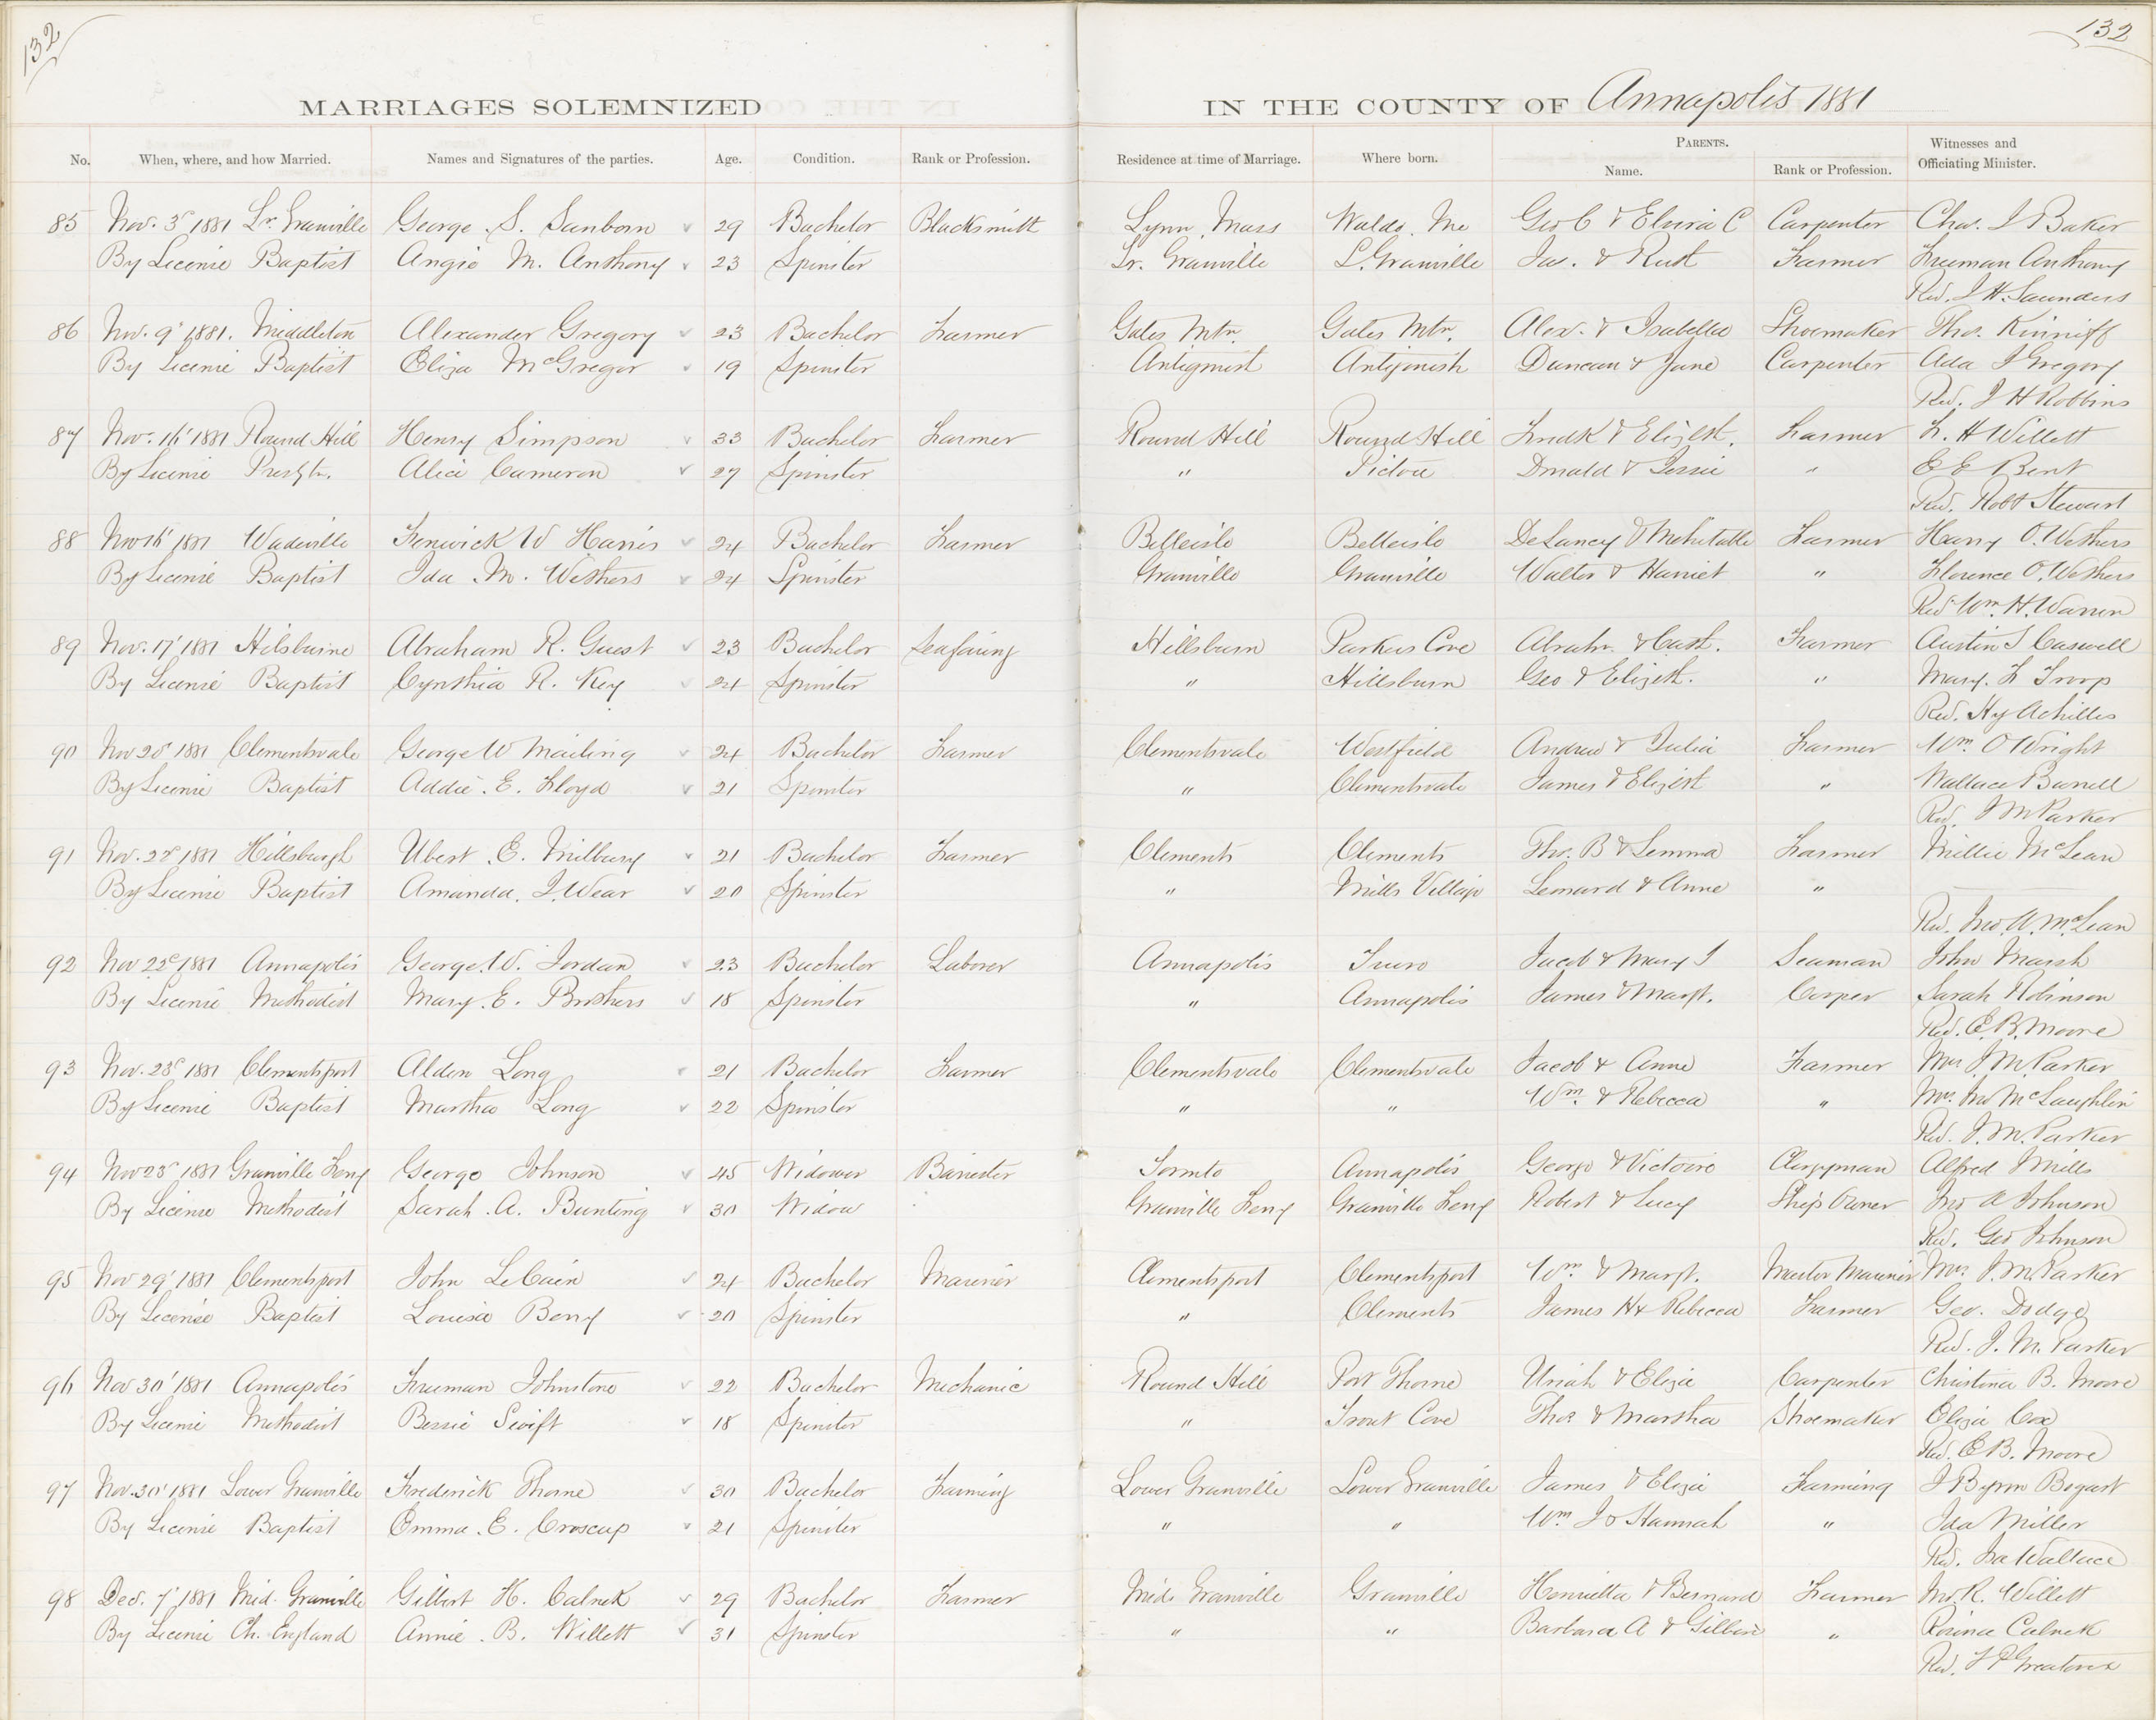 132
132
MARRIAGES SOLEMNIZED IN THE COUNTY OF Annapolis 1881
No. When, where, and how Married. Names and Signatures of the parties. Age. Condition. Rank or Profession. Residence at time of Marriage. Where born. PARENTS. Name. Rank or Profession. Witnesses and Officiating Minister.
85 Nov. 3 1881 Lr. Granville George S. Sanborn 29 Bachelor Blacksmith Lynn Mass Waldo Me Geo C & Elvira C Carpenter Chas. I Baker
By License Baptist Angie M. Anthony 23 Spinster Lr. Granville L. Granville Jas. & Ruth Farmer Freeman Anthony
Rev. J H. Saunders
86 Nov. 9 1881. Middleton Alexander Gregory 23 Bachelor Farmer Gates Mtn. Gates Mtn. Alex. & Isabella Shoemaker Thos. Kinniff
By License Baptist Eliza McGregor 19 Spinster Antigonish Antigonish Duncan & Jane Carpenter Ada J Gregory
Rev. J H Robbins
87 Nov. 16 1881 Round Hill Henry Simpson 33 Bachelor Farmer Round Hill Round Hill Fredk & Elizth. Farmer F. H Willett
By License Presbtn. Alice Cameron 27 Spinster " Pictou Donald & Jessie " E E Bent
Rev. Robt Stewart
88 Nov 16 1881 Wadeville Fenwick W Harris 24 Bachelor Farmer Belleisle Belleisle DeLancey & Mehitable Farmer Harry O. Wethers
By License Baptist Ida M. Wethers 24 Spinster Granville Granville Walter & Harriet " Florence O. Wethers
Rev Wm. H. Warren
89 Nov. 17 1881 Hilsburne Abraham R. Guest 23 Bachelor Seafaring Hillsburn Parkers Cove Abrahm. & Cath. Farmer Austin S Caswell
By License Baptist Cynthia R. Key 24 Spinster " Hillsburn Geo & Elizth. " Mary. L Troop
Rev. Hy Achilles
90 Nov 20 1881 Clementsvale George W Mailing 24 Bachelor Farmer Clementsvale Westfield Andrew & Julia Farmer Wm. O Wright
By License Baptist Addie. E. Floyd 21 Spinster " Clementsvale James & Elizth " Wallace Burrell
Rev. J M Parker
91 Nov. 22 1881 Hillsburgh Ubert E. Milbury 21 Bachelor Farmer Clements Clements Thos. B & Lemma Farmer Millie McLean
By License Baptist Amanda. J. Wear 20 Spinster " Mills Village Leonard & Anne "
Rev. Jno. A. McLean
92 Nov 22 1881 Annapolis George W. Jordan 23 Bachelor Laborer Annapolis Truro Jacob & Mary J Seaman John Marsh
By License Methodist Mary. E. Brothers 18 Spinster " Annapolis James & Margt. Cooper Sarah Robinson
Rev. E. B. Moore
93 Nov. 23 1881 Clementsport Alden Long 21 Bachelor Farmer Clementsvale Clementsvale Jacob & Anne Farmer Mrs J. M. Parker
By License Baptist Martha Long 22 Spinster " " Wm. & Rebecca " Mrs. Jno McLaughlin
Rev. J. M. Parker
94 Nov 23 1881 Granville Ferry George Johnson 45 Widower Barrister Toronto Annapolis George & Victoire Clergyman Alfred Mills
By License Methodist Sarah. A. Bunting 30 Widow Granville Ferry Granville Ferry Robert & Lucy Ship Owner Jno A Johnson
Rev. Geo Johnson
95 Nov 29 1881 Clementsport John LeCain 24 Bachelor Mariner Clementsport Clementsport Wm. & Margt. Master Mariner Mrs. J. M. Parker
By License Baptist Louisa Berry 20 Spinster " Clements James H & Rebecca Farmer Geo. Dodge
Rev. J. M. Parker
96 Nov 30 1881 Annapolis Freeman Johnstone 22 Bachelor Mechanic Round Hill Port Thorne Uriah & Eliza Carpenter Christina B. Moore
By License Methodist Bessie Swift 18 Spinster " Trout Cove Thos. & Martha Shoemaker Eliza Cox
Rev. E B. Moore
97 Nov. 30 1881 Lower Granville Frederick Thorne 30 Bachelor Farming Lower Granville Lower Granville James & Eliza Farming J Byron Bogart
By License Baptist Emma. E. Croscup 21 Spinster " " Wm J & Hannah " Ida Miller
Rev. Isa Wallace
98 Dec. 7 1881 Mid. Granville Gilbert H. Calnek 29 Bachelor Farmer Mid. Granville Granville Henrietta & Bernard Farmer Jno. R. Willett
By License Ch. England Annie. B. Willett 31 Spinster " " Barbara A & Gilbert " Calnek
Rev. F P Greatorex